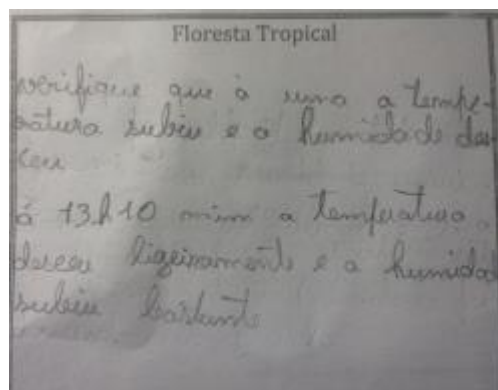 Floresta Tropical
verifique que à uma a tempe-
ratura subiu e a humidade des-
ceu
á 13h10 mim a temperatura
desceu ligeiramente e a humidad
subiu bastante